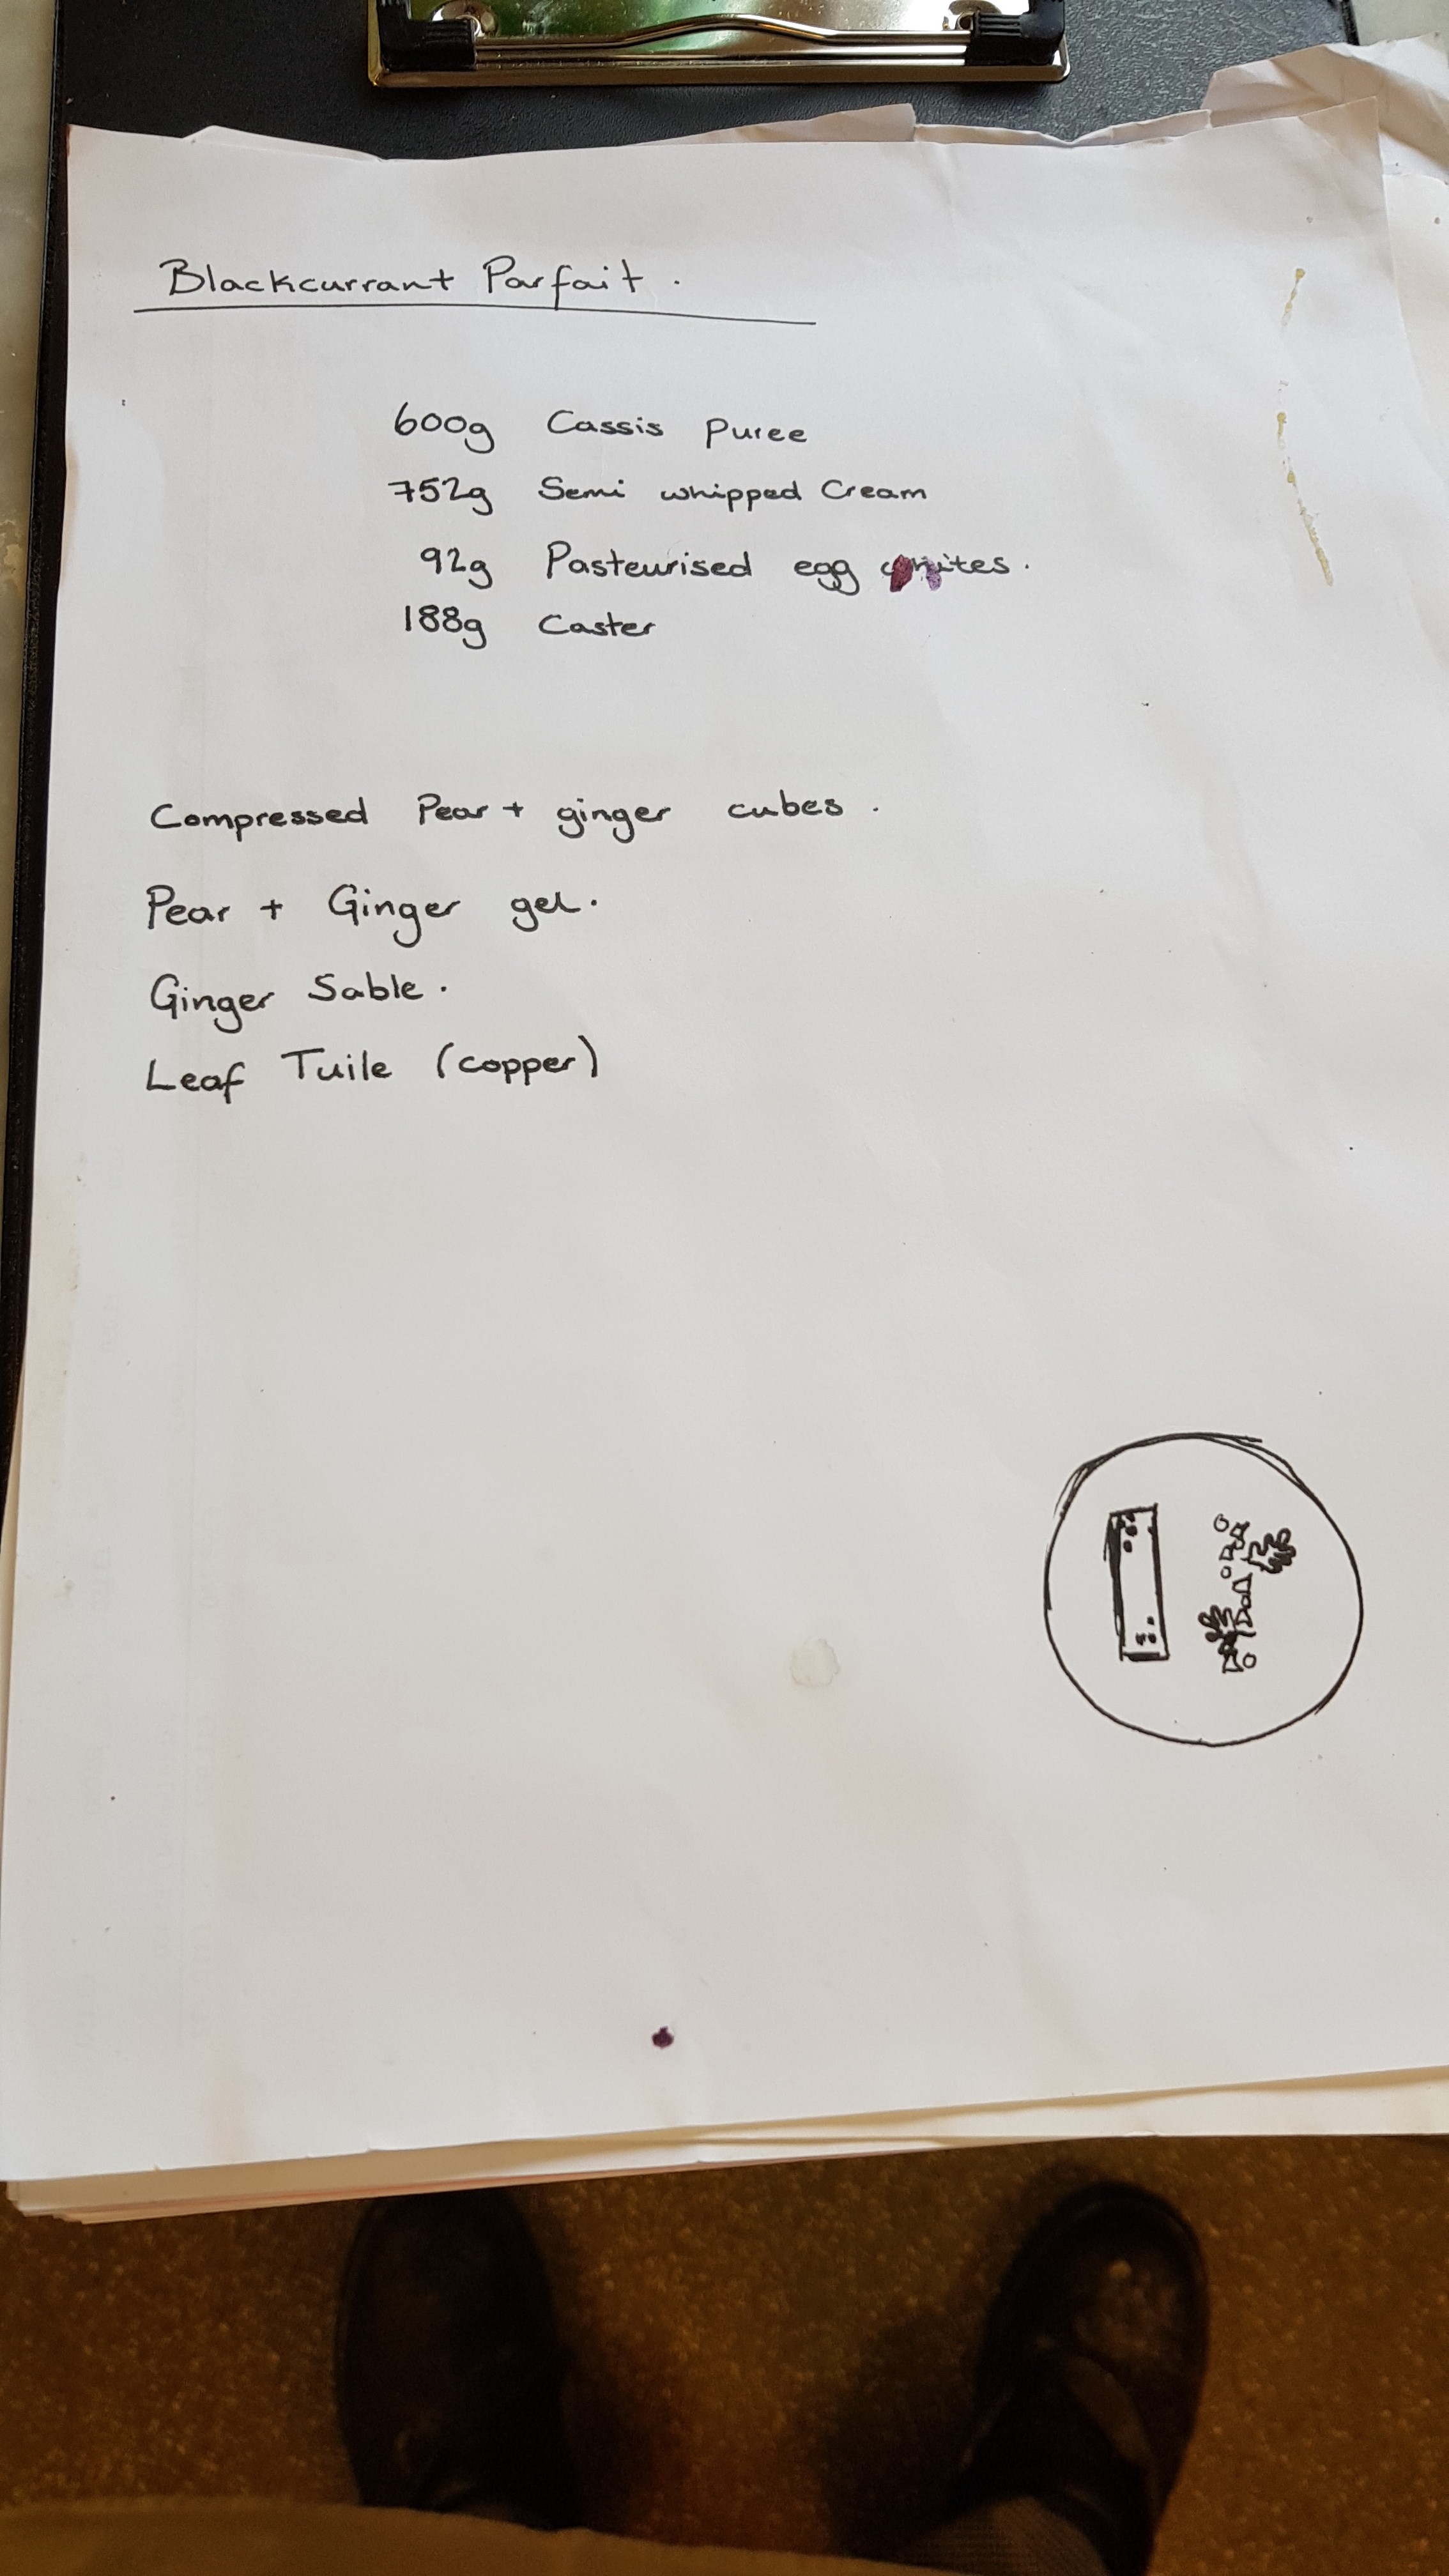 Blackcurrant Parfait.
600g Cassis Puree
752g Semi whipped Cream
92g Pasteurised egg whites.
188g Caster
Compressed Pear + ginger cubes.
Pear + Ginger gel.
Ginger Sable.
Leaf Tuile (copper)